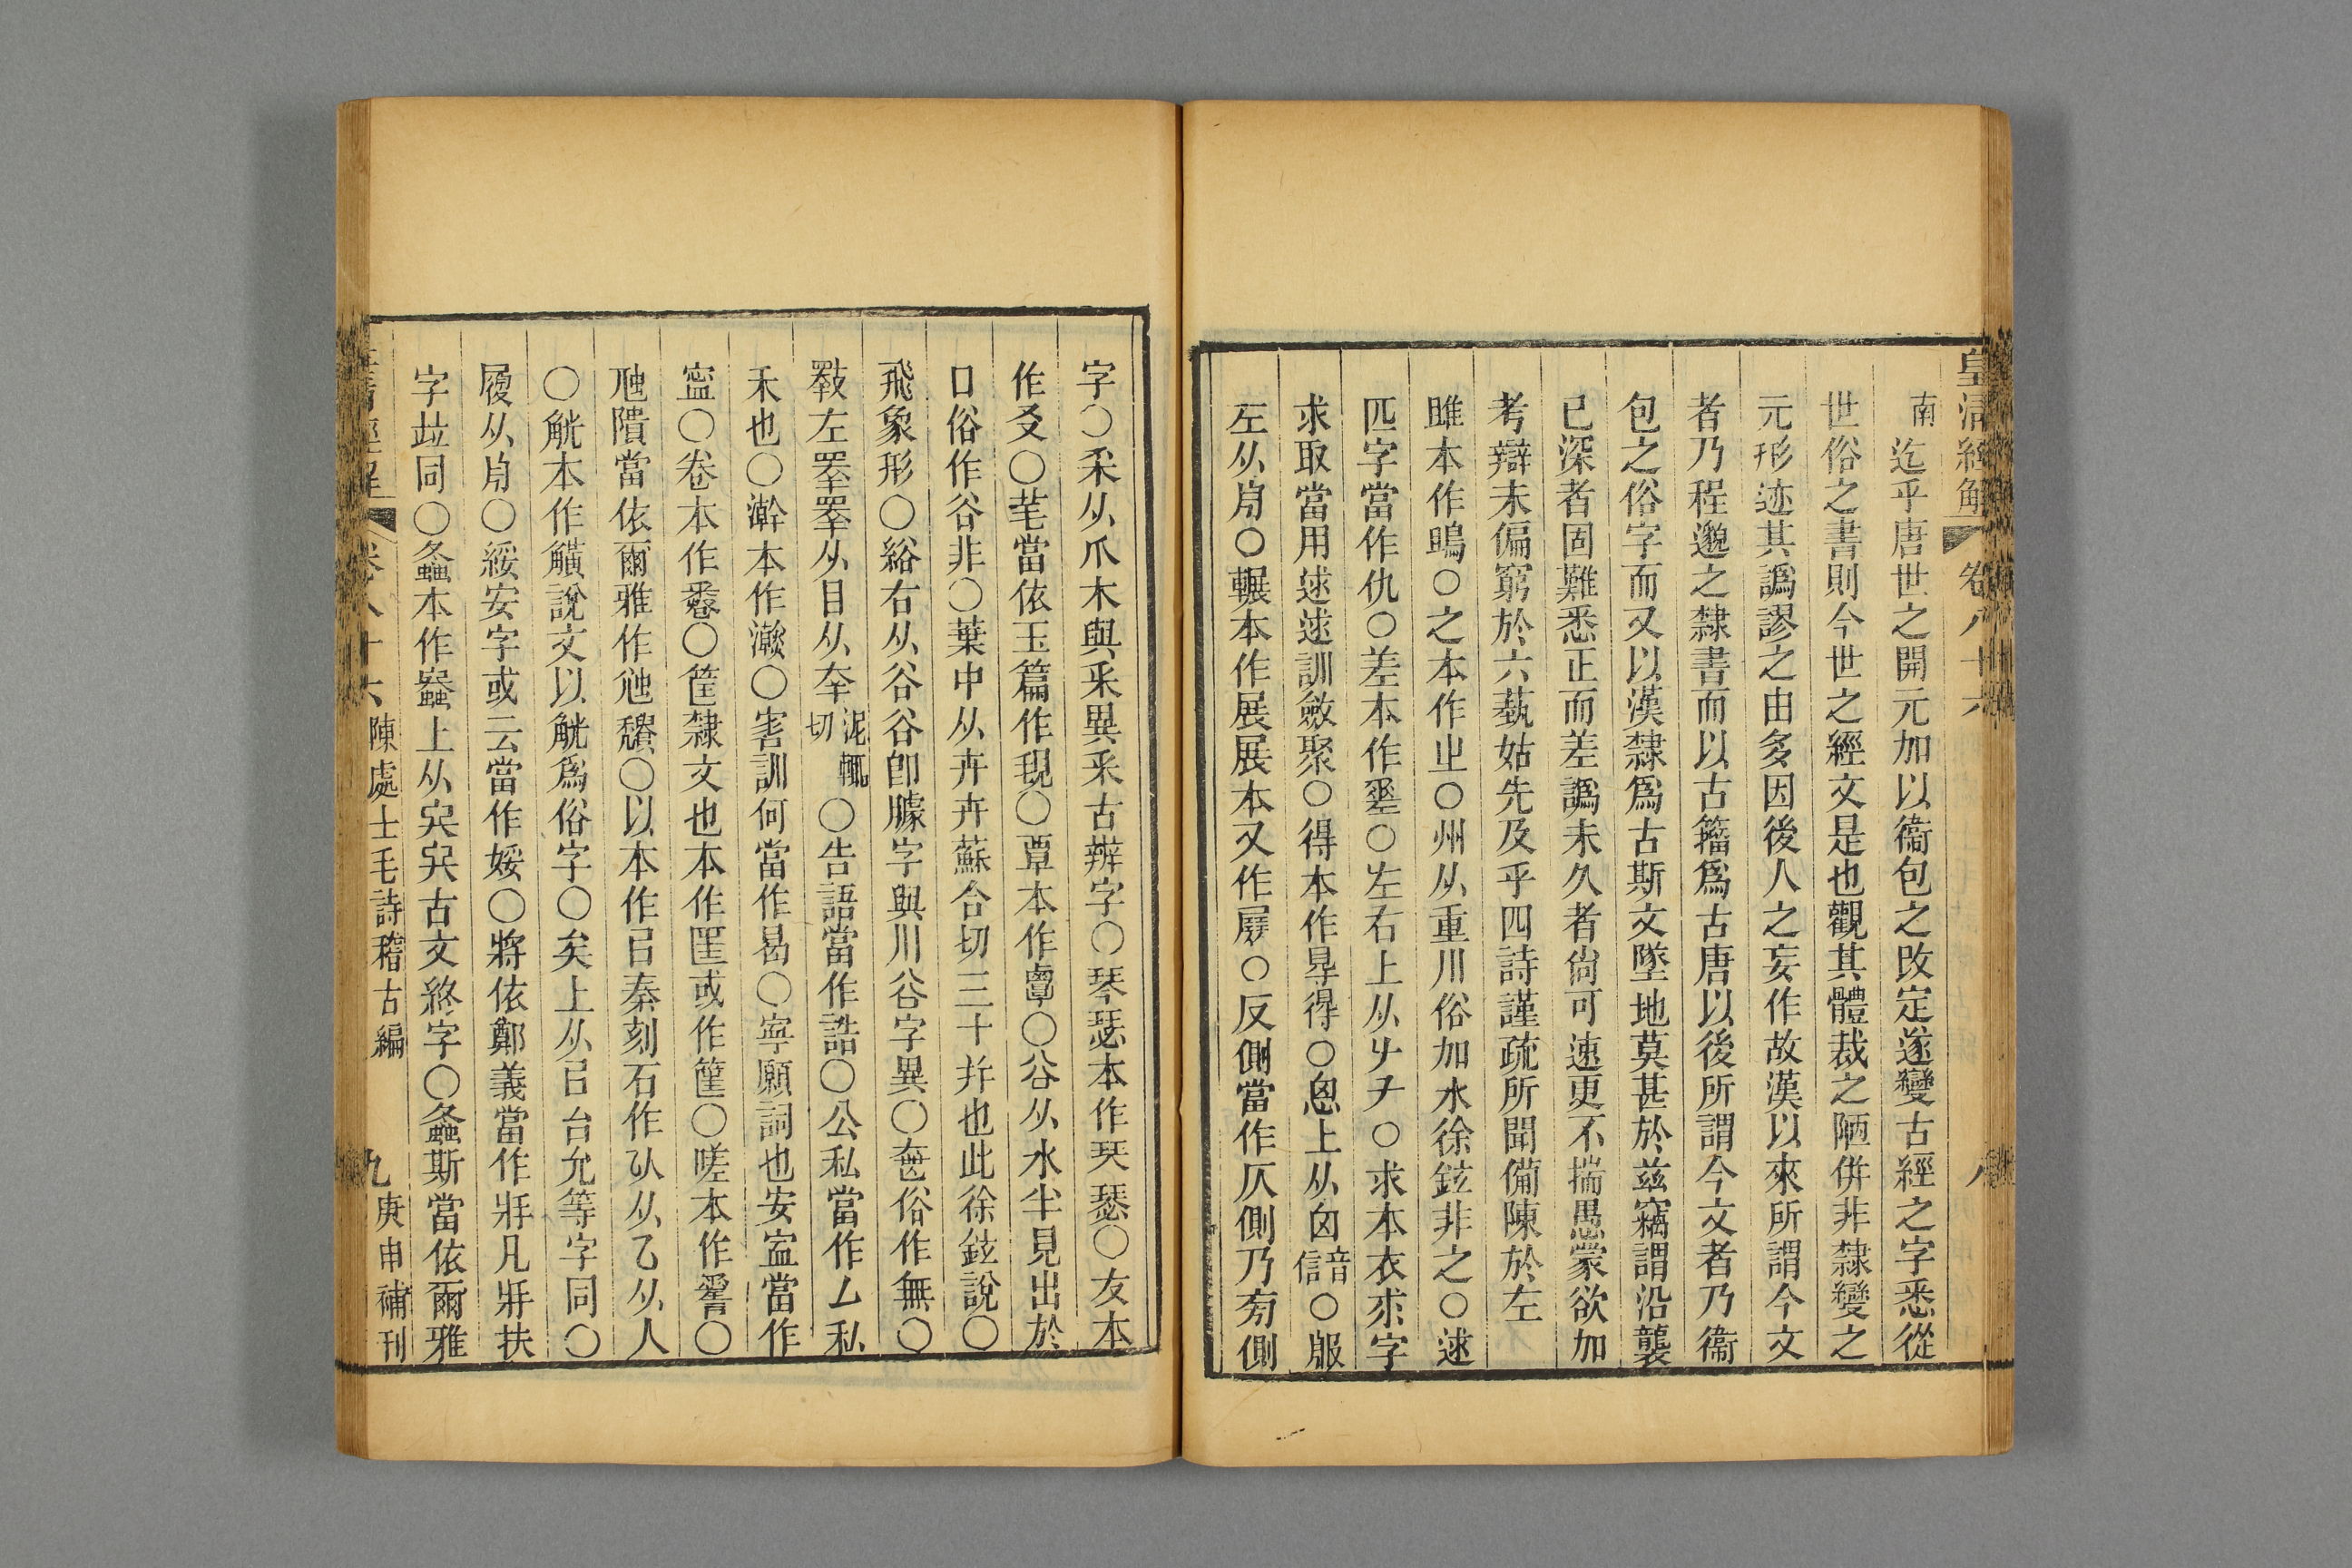 皇清經解 卷八十六 八
南迄乎唐世之開元加以衞包之改定遂變古經之字悉從
世俗之書則今世之經文是也觀其體裁之陋併非隸變之
元形迹其譌謬之由多因後人之妄作故漢以來所謂今文
者乃程邈之隸書而以古籀爲古唐以後所謂今文者乃衞
包之俗字而又以漢隸爲古斯文墜地莫甚於兹竊謂沿襲
已深者固難悉正而差譌未久者尙可速更不揣愚蒙欲加
考辯未偏窮於六藝姑先及乎四詩謹疏所聞備陳於左
雎本作鴡○之本作㞢○州从重川俗加水徐鉉非之○逑
匹字當作仇○差本作𢀩○左右上从𠂇又○求本衣求字
求取當用逑逑訓斂聚○得本作㝵得○恖上从囟音信○服
左从舟○輾本作展展本又作㞡○反側當作仄側乃㫄側
字○采从爪木與釆異釆古辨字○琴瑟本作珡瑟○友本
作㕛○芼當依玉篇作覒○覃本作𧟹○㕣从水半見出於
口俗作谷非○葉中从卉卉蘇合切三十幷也此徐鉉說○
飛象形○綌右从谷谷卽臄字與川谷字異○𦭳俗作無○
斁左睪睪从目从㚔泥輒切○告語當作誥○公私當作厶私
禾也○澣本作㵐○害訓何當作曷○寜願詞也安寍當作
寍○卷本作𢍏○筐隸文也本作匡或作筐○嗟本作𧬨○
虺隤當依爾雅作虺穨○以本作㠯秦刻石作㕥从乙从人
○觥本作觵說文以觥爲俗字○矣上从㠯台允等字同○
履从舟○綏安字或云當作娞○將依鄭義當作𢪇凡𢪇扶
字竝同○螽本作𧑄上从𠔾𠔾古文終字○螽斯當依爾雅
皇清經解 卷八十六 陳處士毛詩稽古編 九 庚申補刊